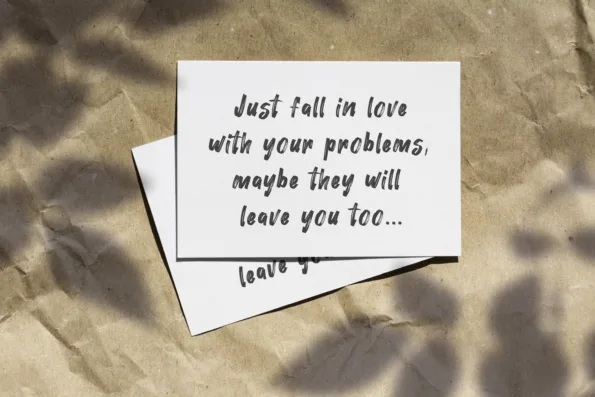 Just fall in love
with your problems,
maybe they will
leave you too...
leave